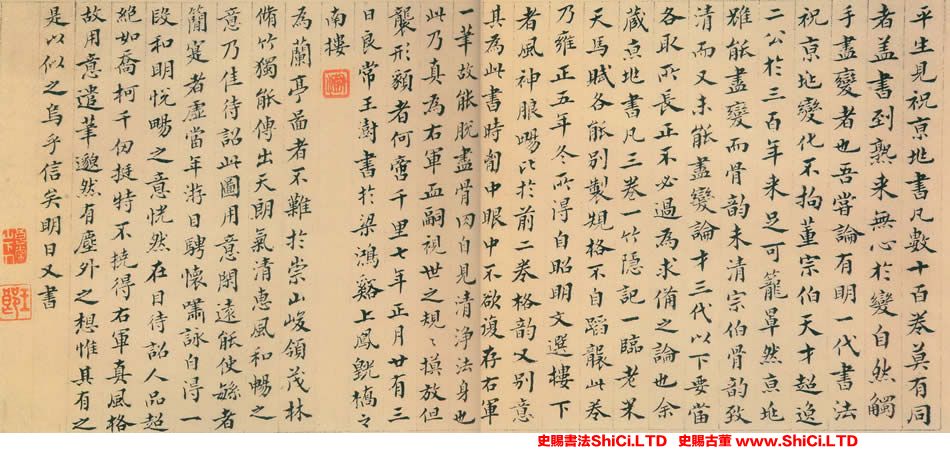 平生見祝京兆書凡數十百卷莫有同
者盖書到熟來無心於變自然觸
手盡變者也吾嘗論有明一代書法
祝京兆變化不拘董宗伯天才超逸
二公於三百年來足可籠罩然京兆
雖能盡變而骨韵未清宗伯骨韵致
清而又未能盡變論才三代以下要當
各取所長正不必過為求備之論也余
蔵京兆書凡三卷一竹隱記一臨老米
天馬賦各能别製規格不自蹈襲此卷
乃雍正五年冬所得自昭明文選樓下
者風神朗暢比於前二卷格韵又别意
其為此書時胷中眼中不欲復存右軍
一筆故能脱盡骨肉自見清淨法身也
此乃真為右軍血嗣視世之規〻摸放但
襲形貌者何啻千里七年正月廿有三
日良常王澍書於梁鴻谿上鳳翫橋之
南樓
為蘭亭啚者不難於崇山峻領茂林
脩竹獨能傳出天朗氣清惠風和暢之
意乃佳待詔此圖用意閑遠能使觀者
蕳寔者虚當年游目騁懷嘯詠自得一
段和明悦暢之意恍然在目待詔人品超
絶如喬柯千仞挺特不撓得右軍真風格
故用意遣筆邈然有塵外之想惟其有之
是以似之烏乎信矣明日又書
史賜書法ShiCi.LTD 史賜古董 www.ShiCi.LTD